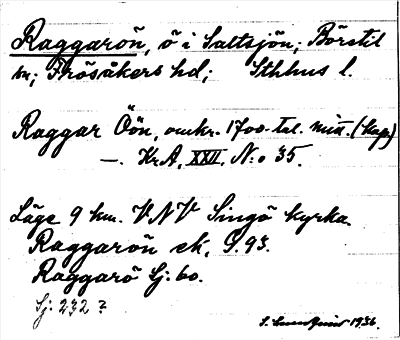 Raggarön, ö i Saltsjön; Börstil
sn; Frösåkers hd; Sthlms l.
Raggar Öön, omkr. 1700-tal. mitt. (kap)
—. Kr.A, XXII, N:o 35.
Läge 9 km. VNV Singö kyrka.
Raggarön ek, S. 93.
Raggarö Sj: 60.
Sj: 232?
S. 1936.